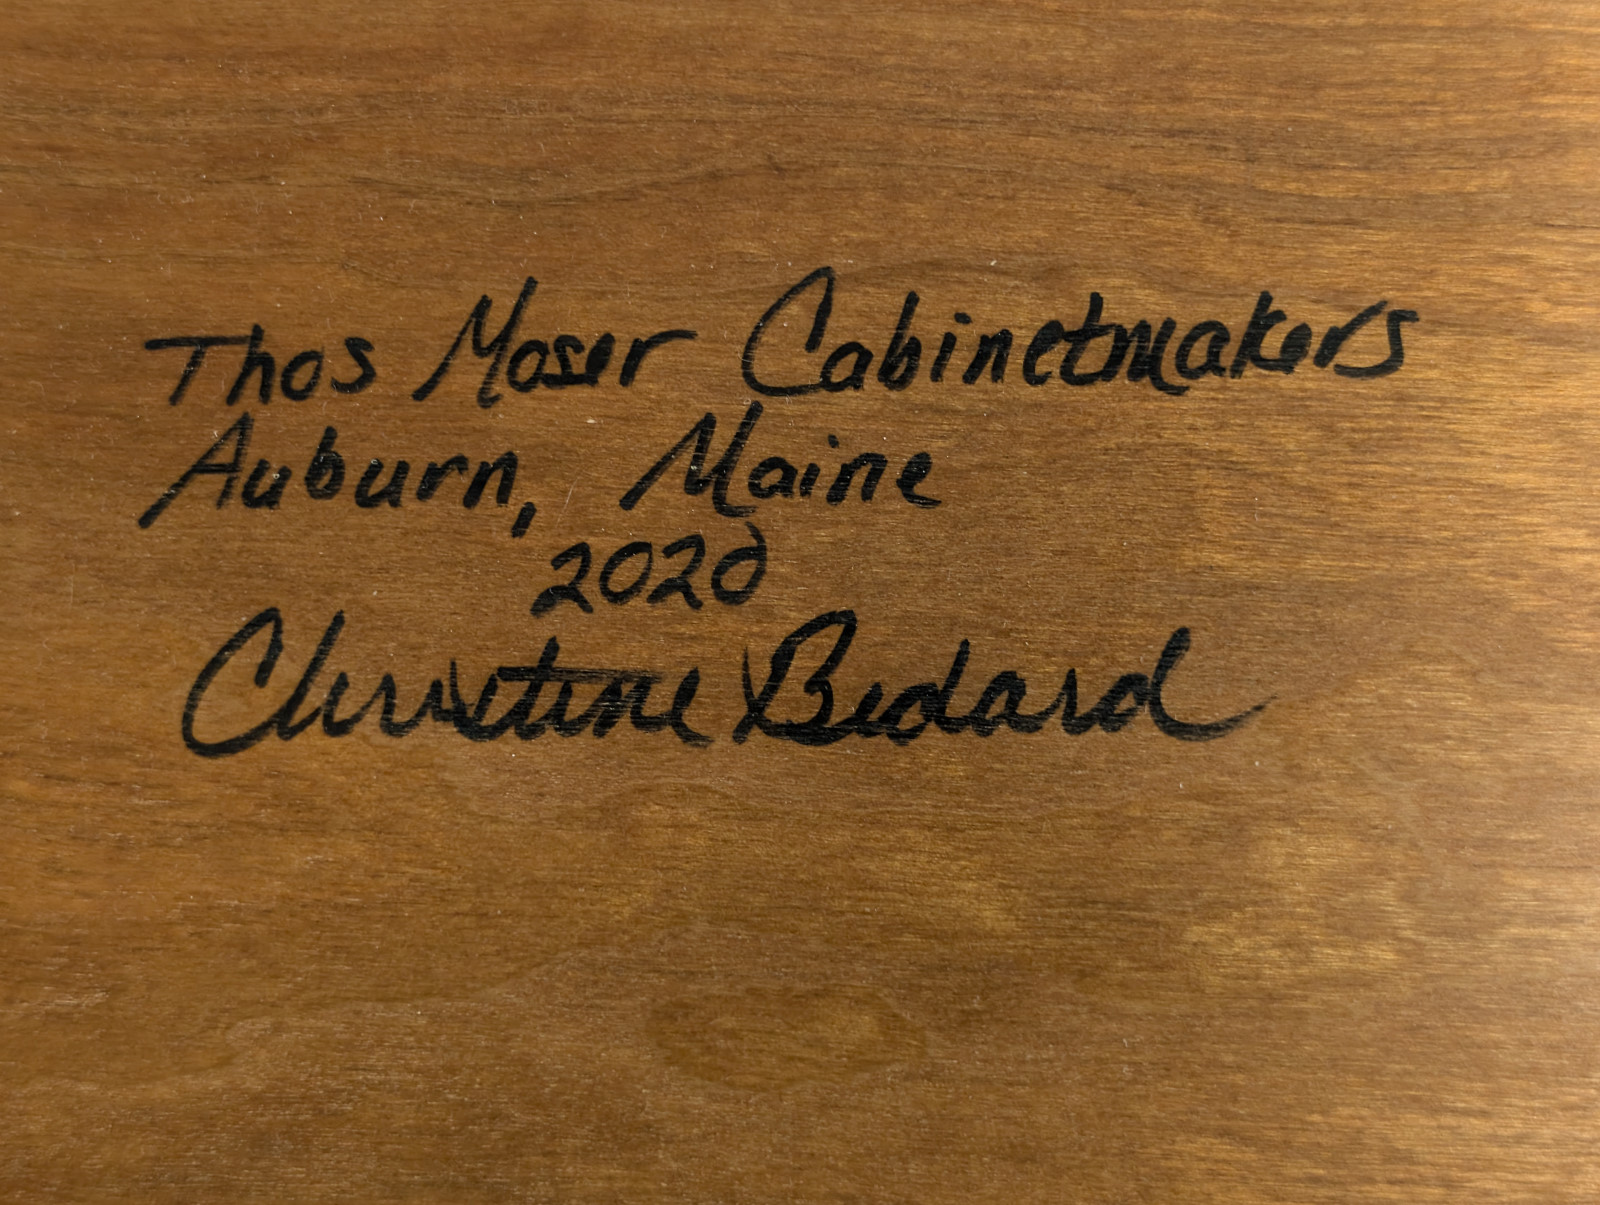 Thos Moser Cabinetmakers
Auburn, Maine
2020
Christine Bedard